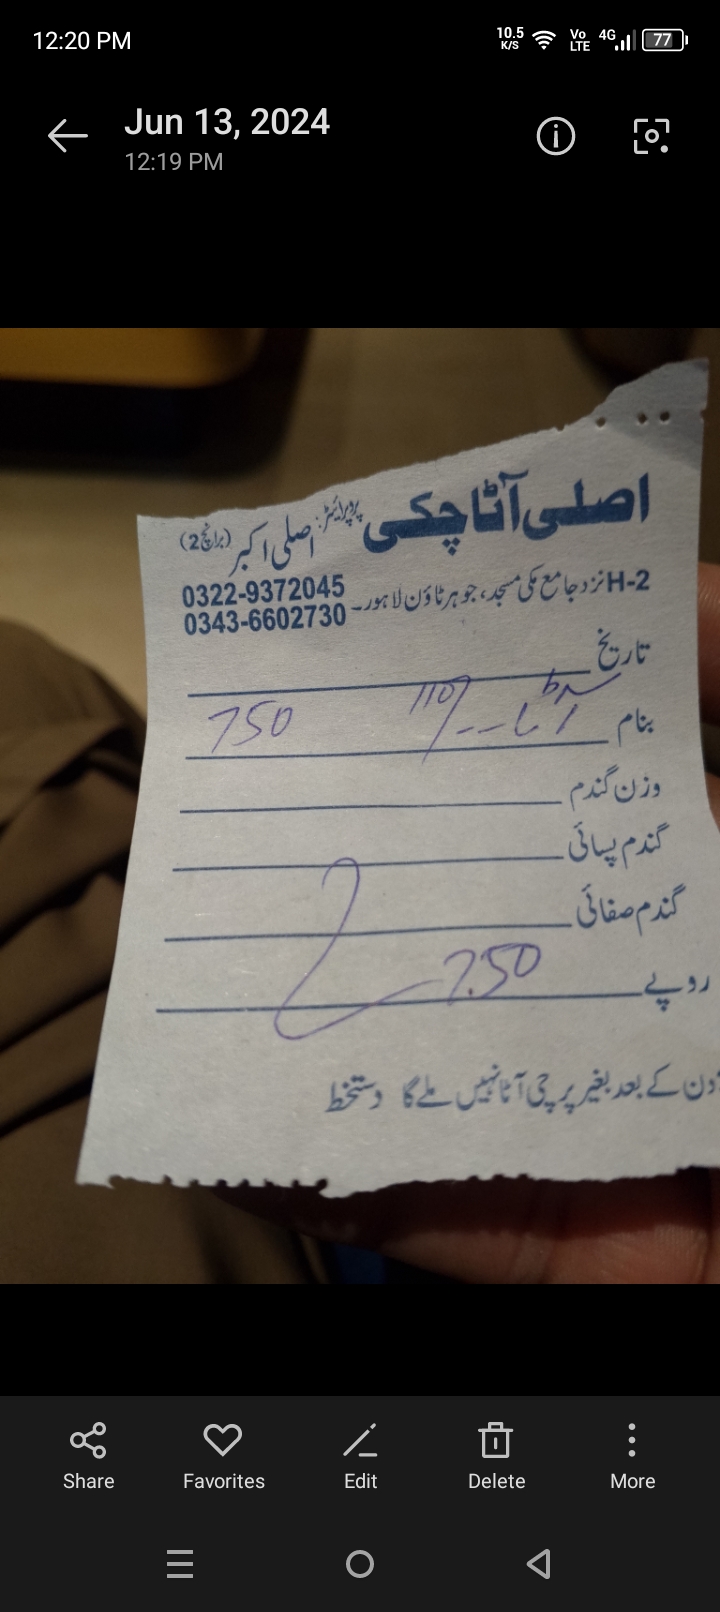 12:20 PM 10.5 K/S Vo LTE 4G 77
Jun 13, 2024
12:19 PM
اصلی آٹا چکی پروپرائیٹر: اصلی اکبر (برانچ 2)
H-2 نزد جامع مکی مسجد، جوہر ٹاؤن لاہور۔ 0322-9372045
0343-6602730
تاریخ
بنام 750
وزن گندم
گندم پسائی
گندم صفائی
روپے 750
دن کے بعد بغیر پرچی آٹا نہیں ملے گا دستخط
Share Favorites Edit Delete More